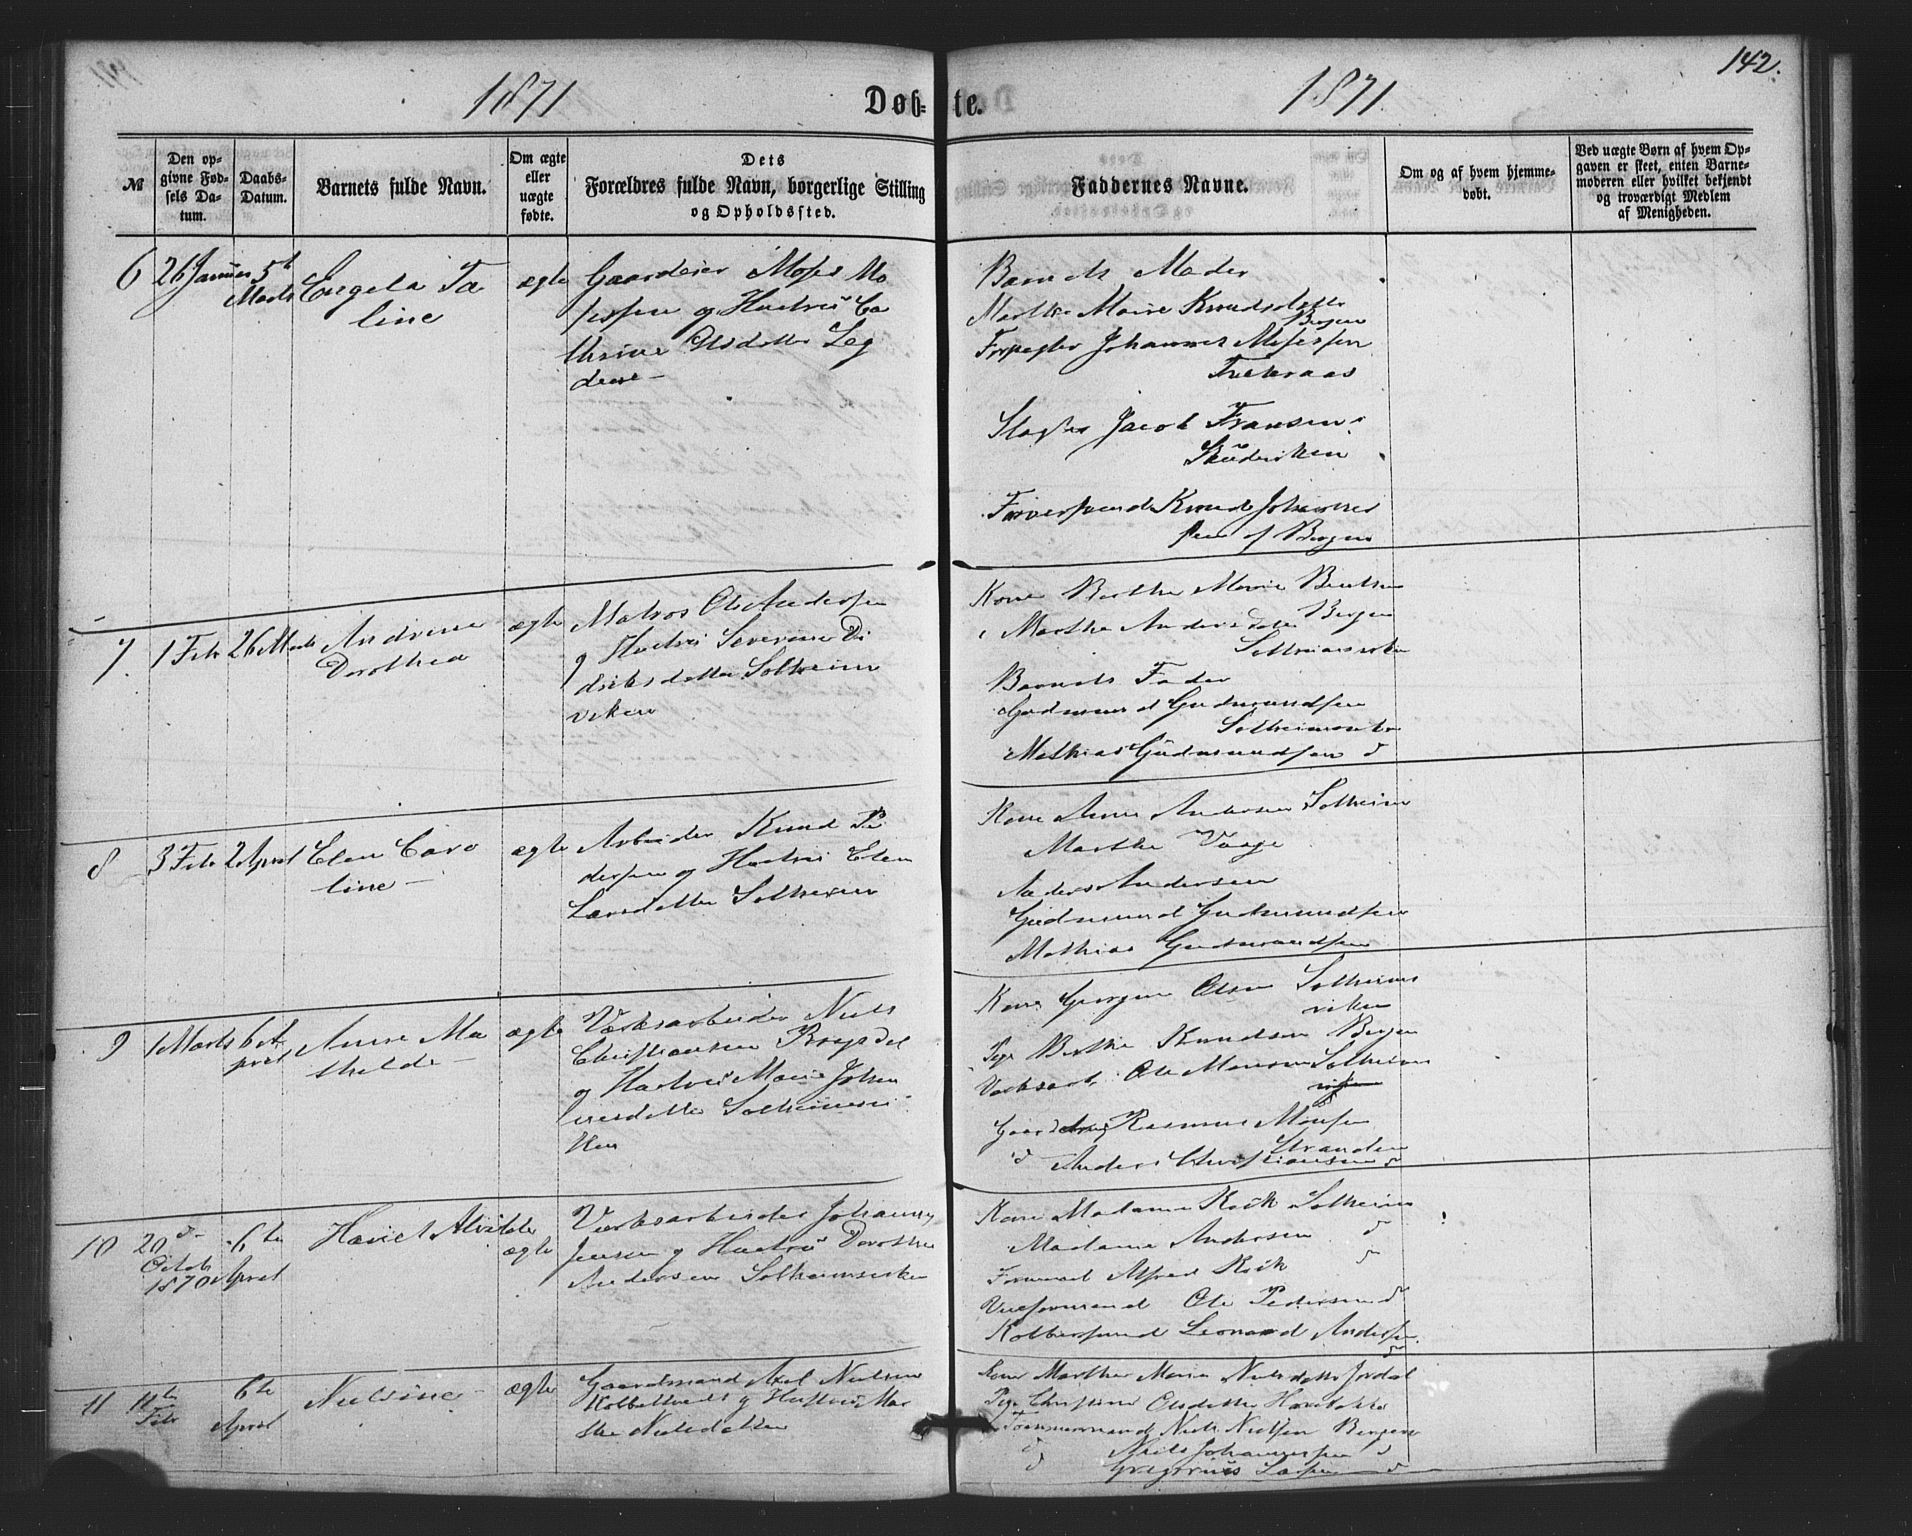 142.
1871
Døb-te.
1871
№
Den op-
givne Fød-
sels Da-
tum.
Daabs-
Datum.
Barnets fulde Navn.
Om ægte
eller
uægte
fødte.
Dets
Forældres fulde Navn, borgerlige Stilling
og Opholdssted.
Faddernes Navne.
Om og af hvem hjemme-
døbt.
Ved uægte Børn af hvem Op-
gaven er skeet, enten Barne-
moderen eller hvilket bekjendt
og troværdigt Medlem
af Menigheden.
6 26 Januar 5te
Marts
Engela Ta
line
ægte
Gaardeier Moses Mo
sessen og Hustru Ca
thrine Olsdatter Leg
dene
Barnets Moder
Marthe Marie Knudsdatter
Bergen
Johannes Mosessen
Slagter Jacob Fransen
Farversvend Knud Johannes
sen af Bergen
7 1 Febr 26 Marts
Andrine
Dorothea
ægte
Matros Ole Andersen
og Hustru Severine Di
driksdatter Solheim
viken
Kone Berthe Marie Bentsen
Bergen
Marthe Andersdatter
Solheimsviken
Barnets Fader
Gudmund Gudmundsen
Solheimsviken
Mathias Gudmundsen d
8 3 Febr 2 April
Elen Caro
line
ægte
Arbeider Knud Pe
dersen og Hustru Elen
Larsdatter Solheim
Kone Anne Andersen Solheim
Marthe Vaage
Anders Andersen
Gudmund Gudmundsen
Mathias Gudmundsen
9 1 Marts 6 A
pril
Anne Ma
thilde
ægte
Værksarbeider Niels
Christiansen
og Hustru Marie Johan
nesdatter Solheimsvi
ken
Kone Georgine Olsen Solheims
viken
Pige Berthe Knudsen Bergen
Værksarb. Ole Monsen Solheims
viken
Rasmus Monsen
Stranden
d Anders Christiansen d
10 20de
Octob
1870
6te
April
ægte
Værksarbeider Johannes
Jensen og Hustru Dorothea
Andersen Solheimsviken
Kone Madame Kock Solheims
Madame Andersen d
Formand Alfred Kock d
Ole Pedersen d
Leonard Andersen
d
11 11te
Febr
6te
April
Nielsine
ægte
Gaardmand Axel Nielsen
og Hustru Mar
the Nielsdatter
Kone Marthe Marie Nielsdatter Jordal
Pige Christine Olsdatter
Tømmermand Niels Nielsen Bergen
d Niels Johannessen d
d Gregorius Larsen d